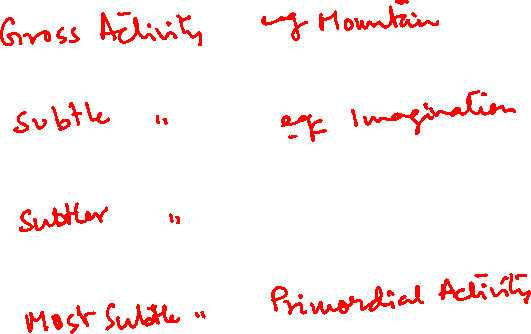 Gross Activity eg Mountain
Subtle " eg Imagination
Subtler "
Most Subtle " Primordial Activity